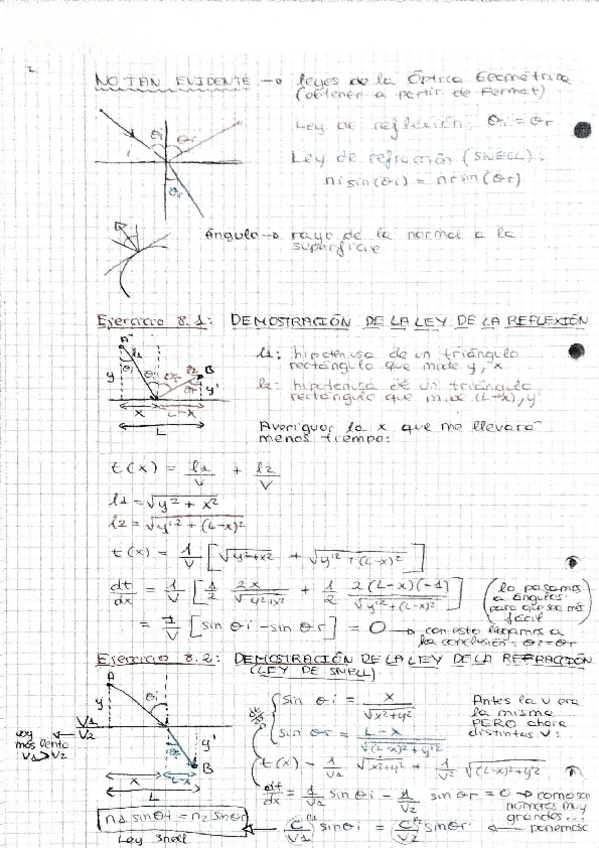 NO TAN EVIDENTE → leyes de la Óptica Geométrica
(obtener a partir de Fermat)
θi θr
Ley de reflexión: θi = θr
Ley de refracción (SNELL):
ni sin(θi) = nr sin(θr)
θr
Ángulo → rayo de la normal a la
superficie
Ejercicio 8.1: DEMOSTRACIÓN DE LA LEY DE LA REFLEXIÓN
A l1 θi θr l2 B
y y'
x L-x
L
l1: hipotenusa de un triángulo
rectángulo que mide y, x
l2: hipotenusa de un triángulo
rectángulo que mide (L-x), y'
Averiguar la x que me llevará
menos tiempo:
t(x) = l1/V + l2/V
l1 = √(y² + x²)
l2 = √(y'² + (L-x)²)
t(x) = 1/V [√(y²+x²) + √(y'² + (L-x)²)]
dt/dx = 1/V [1/2 2x/√(y²+x²) + 1/2 2(L-x)(-1)/√(y'²+(L-x)²)]
(lo pasamos
a ángulos
para que sea más
fácil)
= 1/V [sin θi - sin θr] = 0 → con esto llegamos a
la conclusión: θi = θr
Ejercicio 8.2: DEMOSTRACIÓN DE LA LEY DE LA REFRACCIÓN
(LEY DE SNELL)
A θi
y
V1
V2
voy
más lento
V1 > V2
θr y'
B
x L-x
L
sin θi = x/√(x²+y²)
sin θr = L-x/√((L-x)²+y'²)
Antes la v era
la misma
PERO ahora
distintas V:
t(x) = 1/V1 √(x²+y²) + 1/V2 √((L-x)²+y'²)
dt/dx = 1/V1 sin θi - 1/V2 sin θr = 0 → como son
números muy
grandes...
n1 sin θi = n2 sin θr ← (C/V1) n1 sin θi = (C/V2) n2 sin θr ← ponemos c
Ley Snell